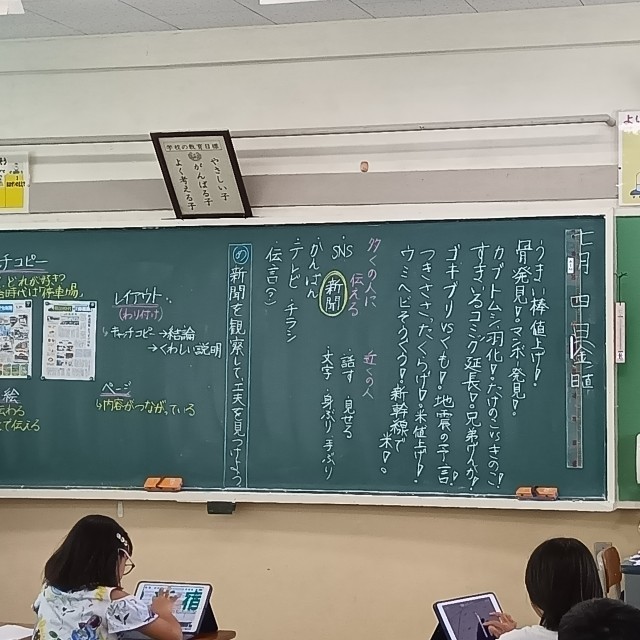 学校の教育目標
やさしい子
がんばる子
よく考える子
七月 四日 金 日直
うまい棒値上げ!
骨発見!マンボー発見!
カブトムシ羽化!たけのこvsきのこ!
すすいるコミック延長!兄弟げんか!
ゴキブリvsくも!地震の予言!
つきささったくらげ!米値上げ!
ウミヘビそうぐう!新幹線で
米!
多くの人に
伝える
近くの人
・SNS
新聞
・かんばん
・テレビ ・チラシ
・伝言(?)
・話す ・見せる
・文字 ・身ぶり手ぶり
め 新聞を観察して工夫を見つけよう
レイアウト
(わり付け)
↳キャッチコピー→結論
→くわしい説明
ページ
↳内容がつながっている
チコピー
どれが好き?
時代は「停車場」
絵
伝わる
で伝える